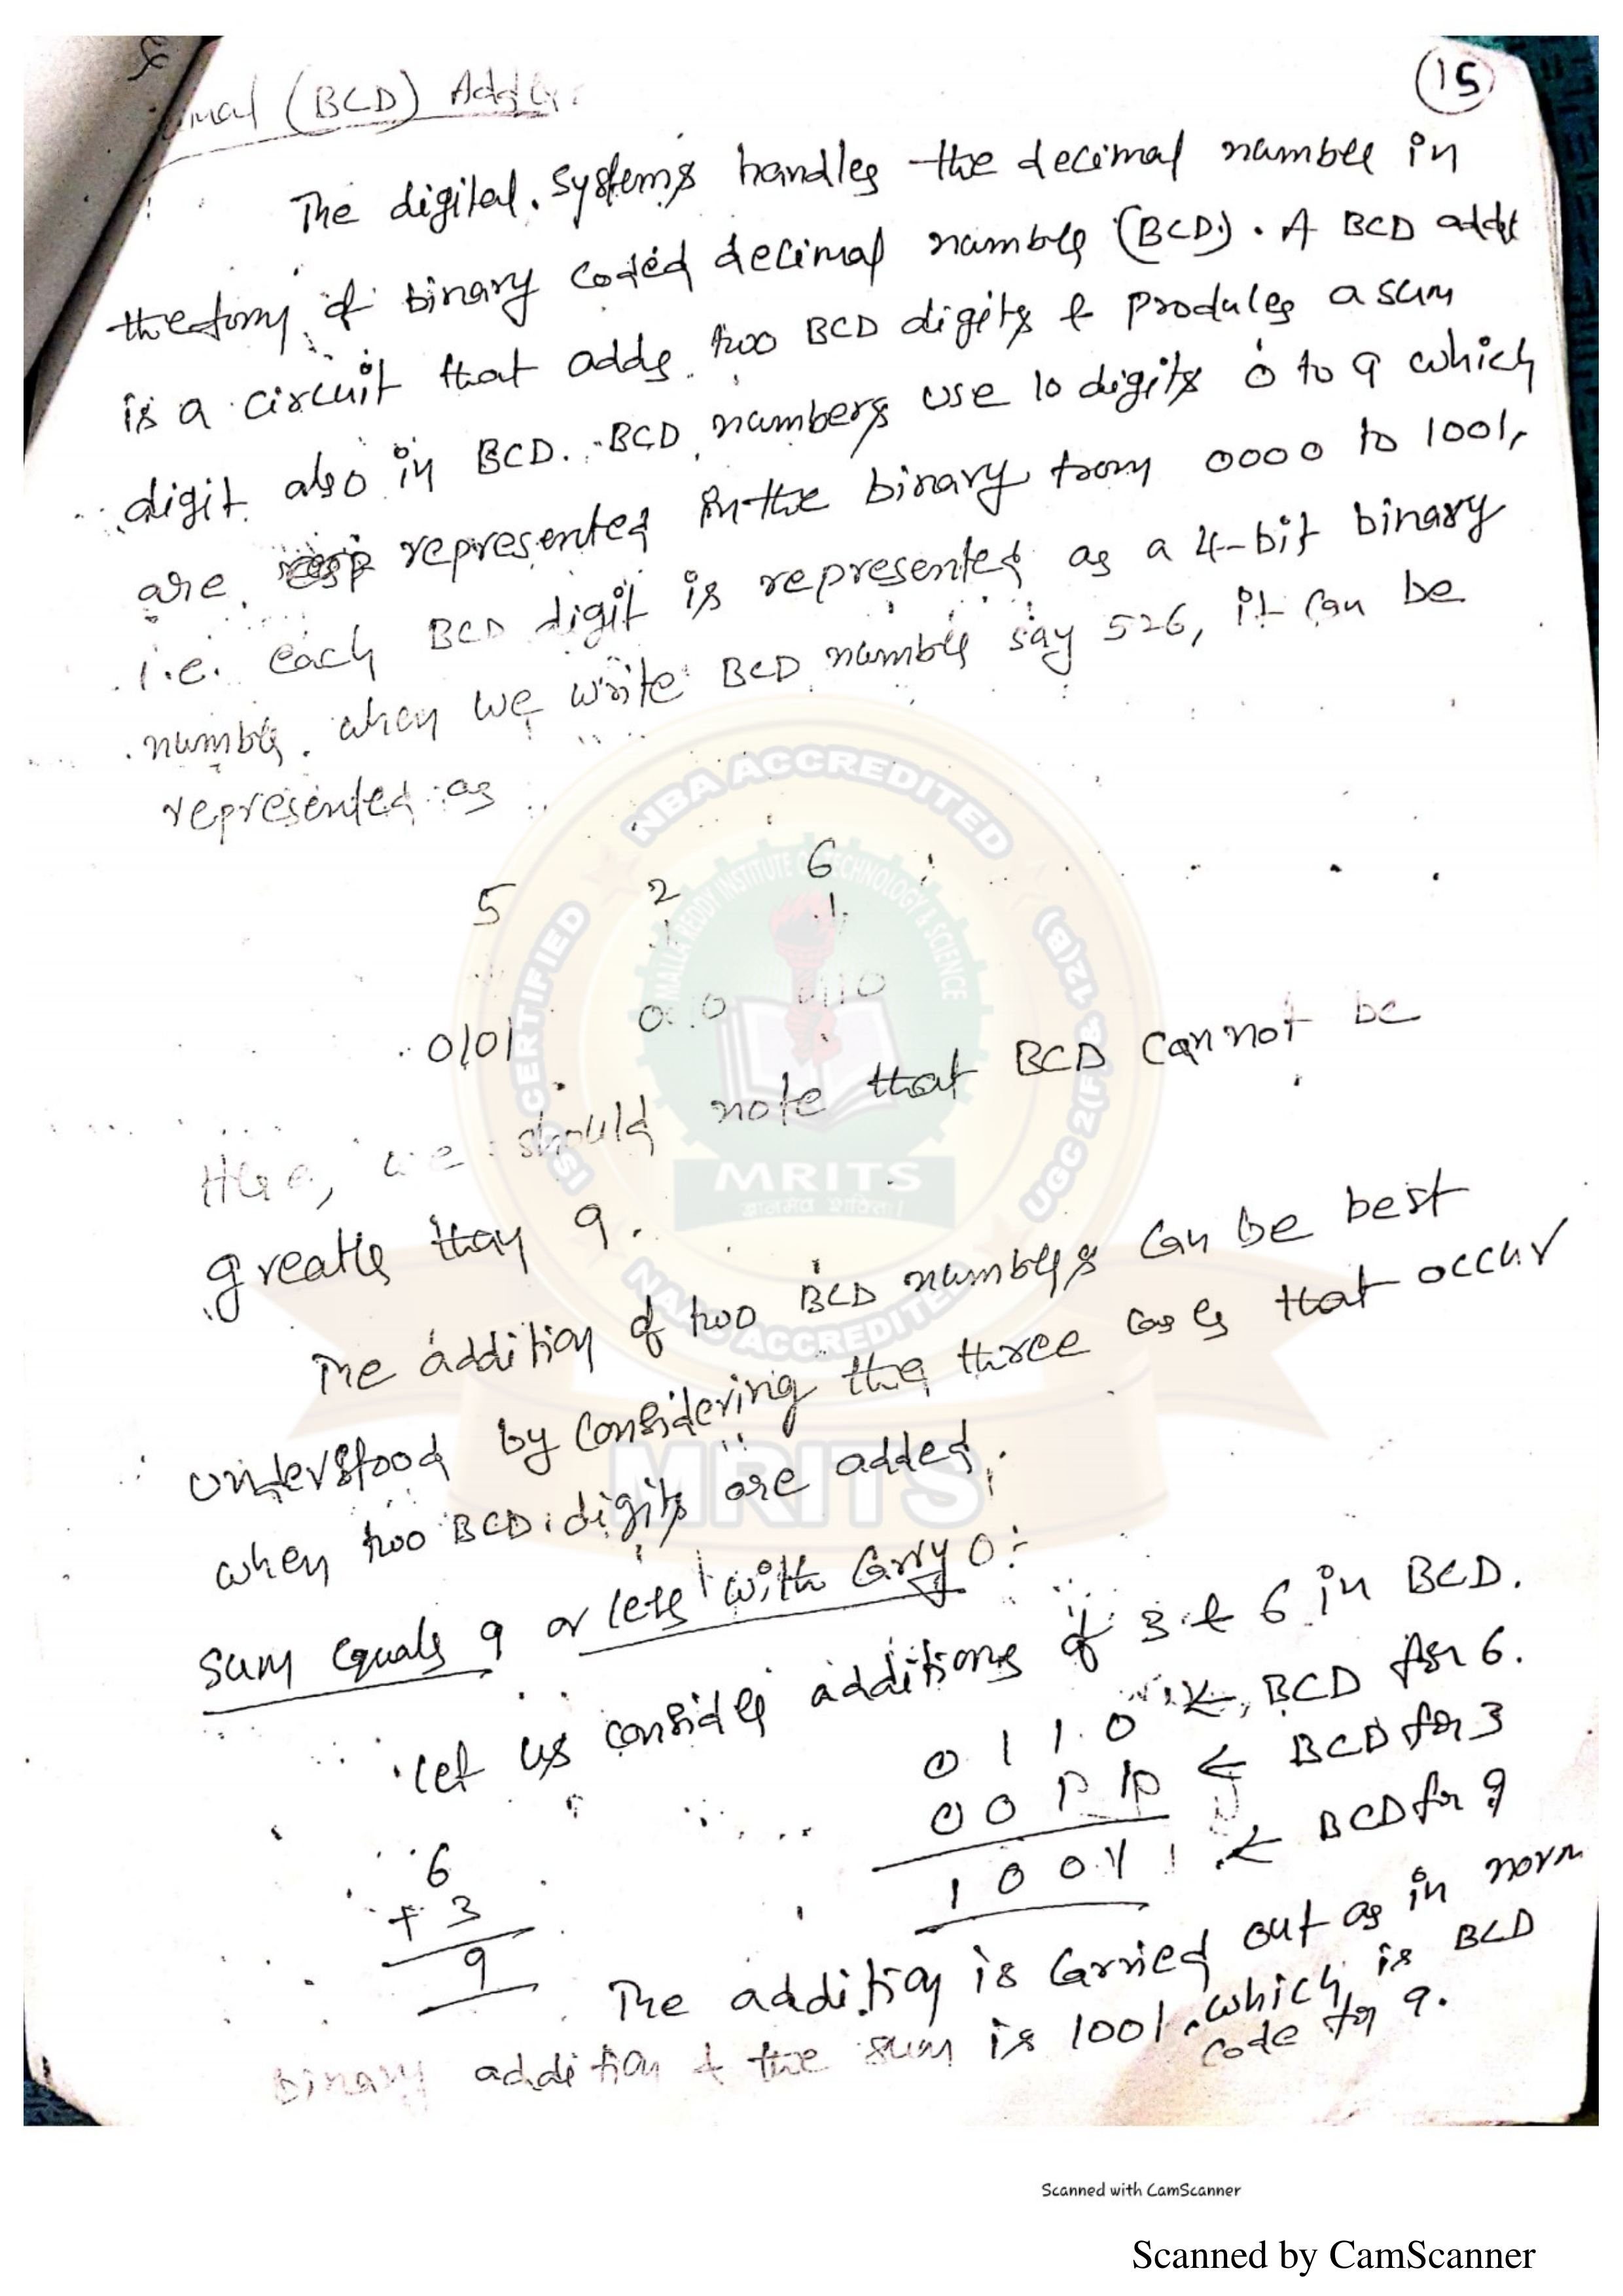 (15)
(BCD) Adder:
The digital systems handles the decimal number in
the form of binary coded decimal number (BCD). A BCD adder
is a circuit that adds two BCD digits & produces a sum
digit also in BCD. BCD numbers use 10 digits 0 to 9 which
are represented in the binary from 0000 to 1001,
i.e. each BCD digit is represented as a 4-bit binary
number. when we write BCD number say 526, it can be
represented as
5 2 6
↓ ↓
0101
Here, we should note that BCD cannot be
greater than 9.
The addition of two BCD numbers can be best
understood by considering the three cases that occur
when two BCD digits are added.
Sum equals 9 or less with carry 0:-
Let us consider additions of 3 & 6 in BCD.
0 1 1 0 ← BCD for 6.
0 0 1 1 ← BCD for 3
1 0 0 1 ← BCD for 9
6
+ 3
9
The addition is carried out as in norm
binary addition & the sum is 1001, which is BCD
code for 9.
NBA ACCREDITED
MALLA REDDY INSTITUTE OF TECHNOLOGY & SCIENCE
CERTIFIED
UGC 2(F) & 12(B)
MRITS
NAAC ACCREDITED
MRITS
Scanned with CamScanner
Scanned by CamScanner